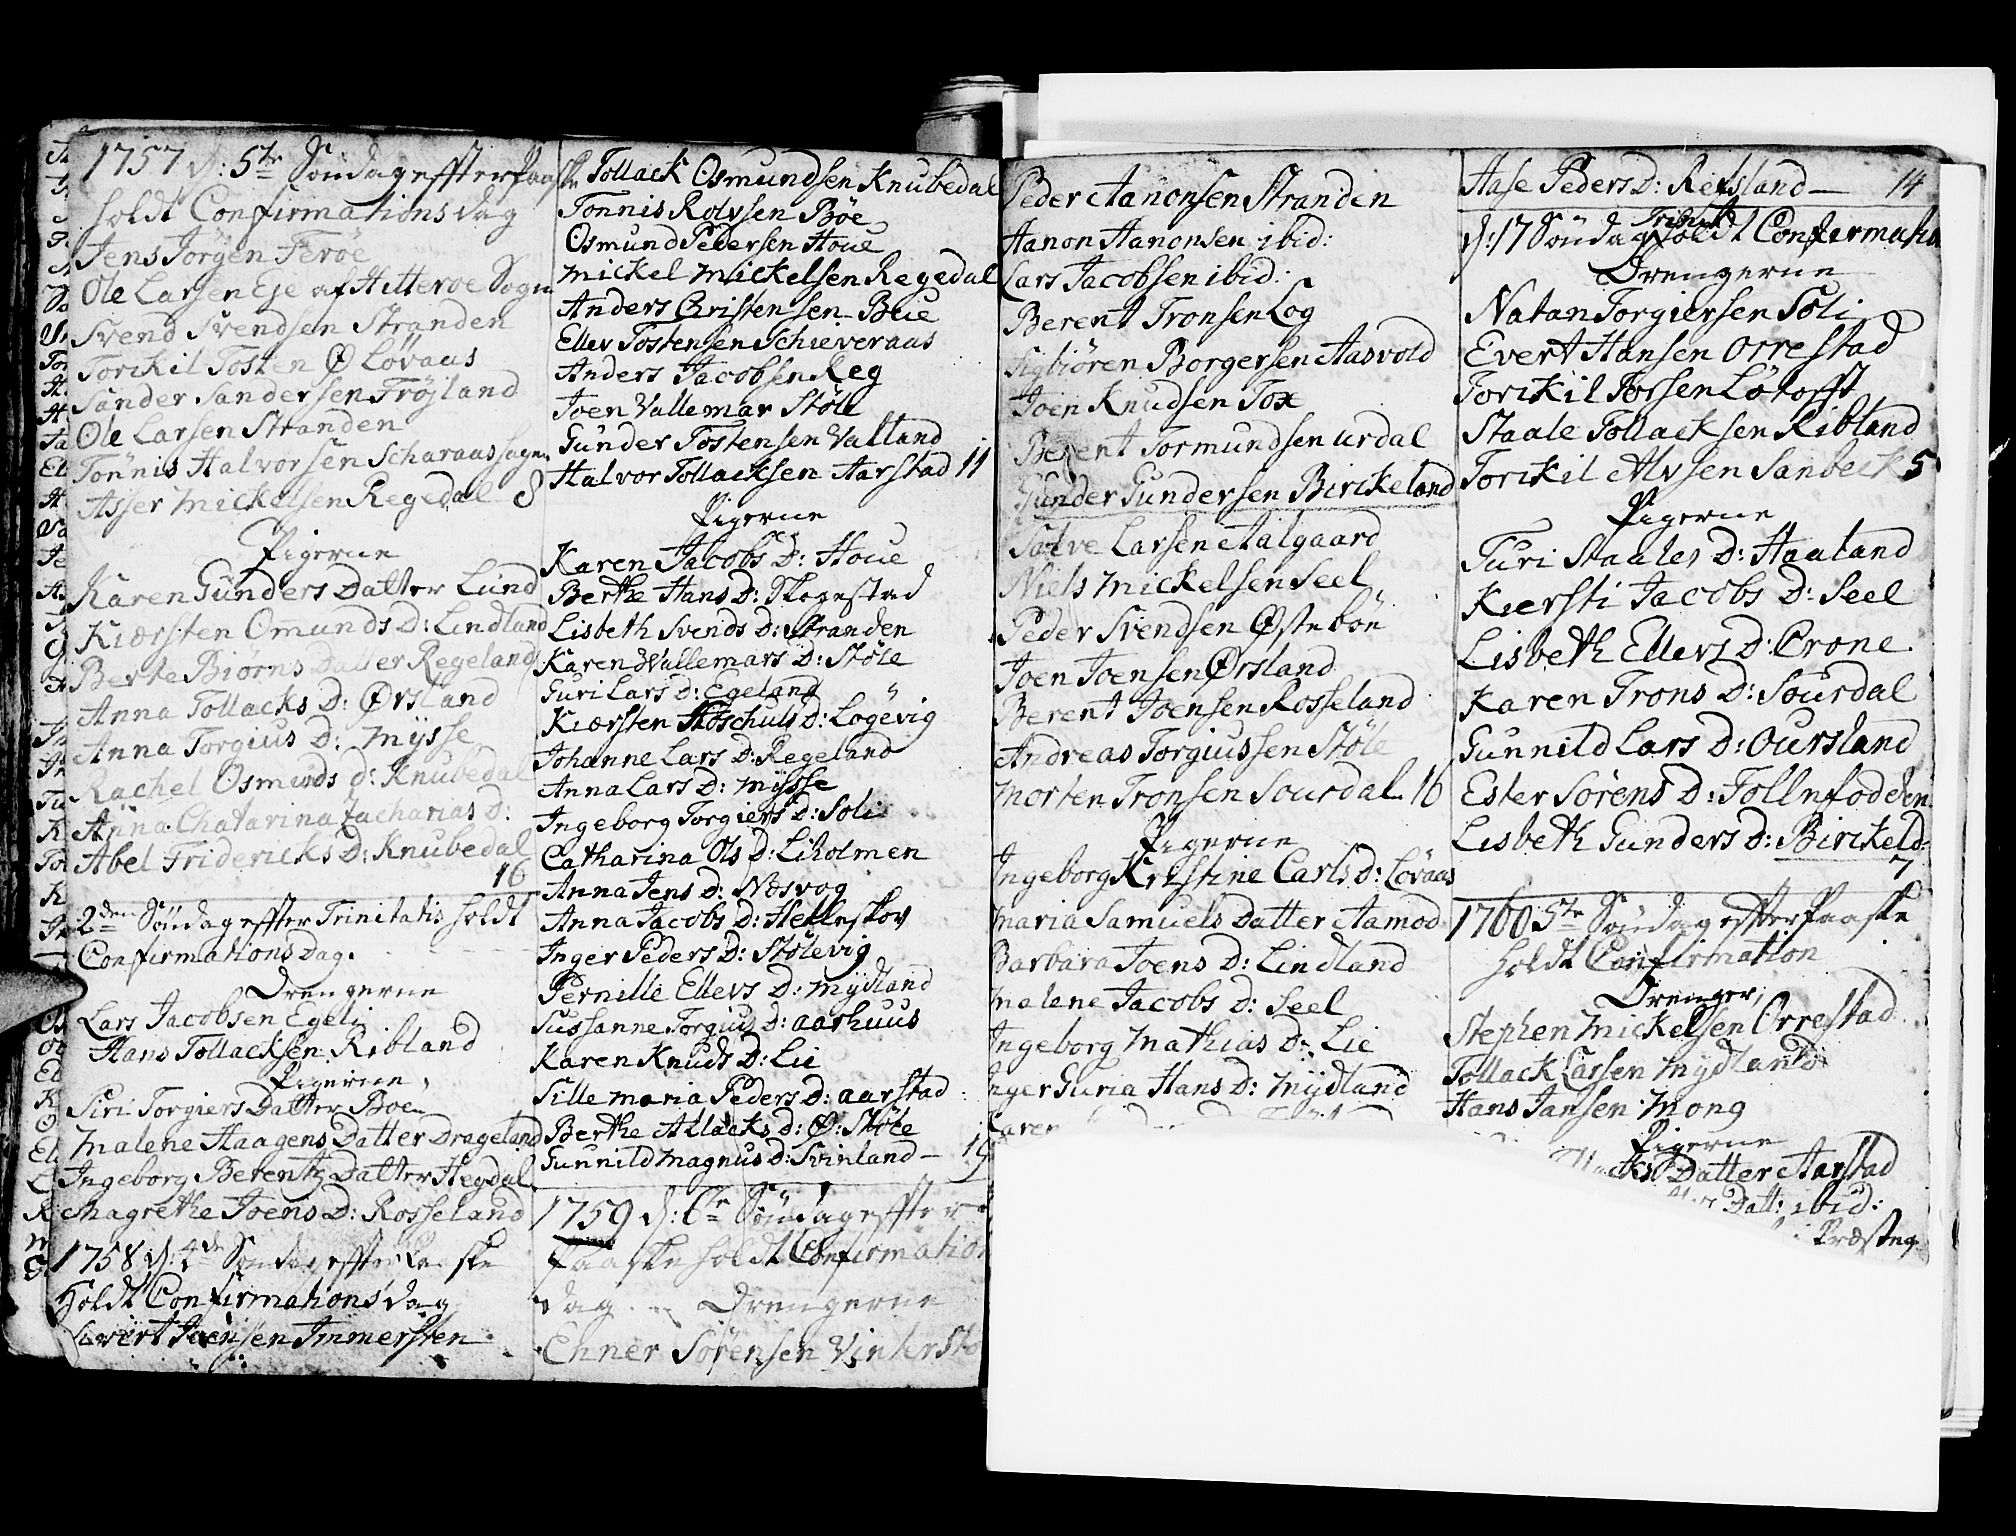 1757 d: 5te Søndag effter Paaske
holdt Confirmations dag
Jens Jörgen Feröe
Ole Larsen Eje af Hitteroe Sogn
Svend Svendsen Stranden
Torkil Tosten Ø Løvaas
Sander Sandersen Fröjland
Ole Larsen Stranden
Tönnis Halvorsen Scharaas sogn
Asser Mickelsen Regedal 8
Pigerne
Karen Gunders Datter Lund
Kiærsten Omunds D: Lindland
Berte Biørns Datter Regeland
Anna Tollacks D: Ørsland
Anna Torgius D: Mÿsse
Rachel Osmunds d: Knubedal
Anna Chatarina Zacharias D:
Abel Fridericks D: Knubedal
16
2den Søndag effter Trinitatis holdt
Confirmations Dag.
Drengerne
Lars Jacobsen Egeli
Hans Tollacksen Ribland
Pigerne
Siri Torgiers Datter Boe
Malene Haagens Datter Drageland
Ingeborg Berentz Datter Hegdal
Magrethe Joens D: Rosseland
1758 d: 4de Søndag effter Paaske
Holdt Confirmations dag
Evert Joensen Immersten
Tollack Osmundsen Knubedal
Tonnis Rolvsen Böe
Osmund Pedersen Houe
Mickel Mickelsen Regedal
Anders Christensen Bue
Ellev Tostensen Schieveraas
Anders Jacobsen Reg
Joen Vallemar Stöle
Gunder Tostensen Vatland
Halvor Tollacksen Aarstad 11
Pigerne
Karen Jacobs D: Houe
Berthe Hans D: Skogestad
Lisbeth Svends D: Stranden
Karen Wallemars D: Støle
Guri Lars D: Egeland
Kiærsten Stoschuls D: Logevig
Johanne Lars D: Regeland
Anna Lars D: Mÿsse
Ingeborg Torgiers D: Soli
Catharina Ols D: Liholmen
Anna Jens D: Næsvog
Anna Jacobs D: Hellnskov
Inger Peders D: Stölevig
Pernille Ellevs D: Mydland
Sussanne Torgius D: aarhuus
Karen Knuds D: Lie
Sille Maria Peders D: aarstad
Berthe Atlacks D: Ø: Støle
Gunnild Magnus D: Svinland — 19
1759 d: 6te Søndag effter
Paaske holdt Confirmation
dag Drengerne
Ehner Sörensen Vintersto
Peder Aanonsen Stranden
Aanon Aanonsen ibid:
Lars Jacobsen ibid:
Berent Tronsen Log
Sigbiören Borgersen Aasvold
Joen Knudsen Tox
Berent Tormundsen Urdal
Gunder Gundersen Birckeland
Salve Larsen Aalgaard
Niels Mickelsen Seel
Peder Svendsen Østeböe
Joen Joensen Ørsland
Berent Joensen Rosseland
Andreas Torgiussen Støle
Morten Tronsen Sourdal 16
Pigerne
Ingeborg Kristine Carls D: Løvaas
Maria Samuels Datter Aamod
Barbara Joens D: Lindland
Malene Jacobs D: Seel
Ingeborg Mathias D: Lie
Inger Guria Hans D: Mÿdland
Karen
Aase Peders D: Refsland — 14
d: 17 Söndag Trinit: holdt Confirmation
Drengerne
Natan Torgiersen Soli
Evert Hansen Orrestad
Torkil Torsen Lotofft
Staale Tollacksen Ribland
Torkil Alvsen Sanbeck 5
Pigerne
Turi Staales D: Haaland
Kiersti Jacobs D: Seel
Lisbeth Ellevs D: Orone
Karen Trons D: Sourdal
Gunnild Lars D: Oursland
Ester Sörens D: Tollnfodden
Lisbeth Gunders D: Birckeld:
7
1760 5te Søndag effter Paaske
holdt Confirmation
Drenger
Stephen Mickelsen Orrestad
Tollack Larsen Mydland
Hans Jansen Mong
Pigerne
Datter Aarstad
Datt: ibid:
Præsteg